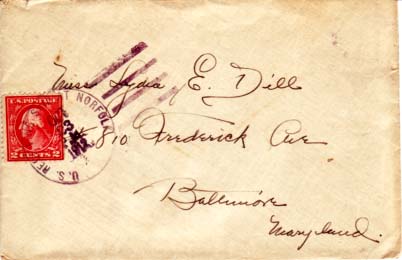 Miss Lydia E. Dill
810 Frederick Ave
Baltimore
Maryland.
U.S. POSTAGE
2 CENTS 2
NORFOLK
U.S.